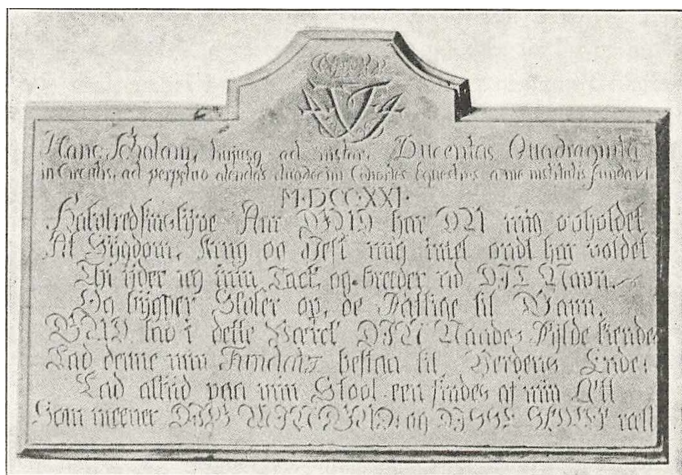 Hanc Scholam, hujusq ad instar, Ducentas Quadraginta
in Circulis, ad perpetuo alendas duodecim Cohortes Equestres a me institutis fundavi.
M·DCC·XXI·
Halvtredsinstyve Aar GUD har DU mig opholdet
At Sygdom, Krig og Pest mig intet ondt har voldet
Thi yder ieg min Tack, og breeder ud DIT Navn.
Og bygger Skoler op, de Fattige til Gavn.
GUD lad i dette Værck DIN Naades Fylde kiende
Lad denne min Fundatz bestaa til Verdens Ende:
Lad altiid paa min Stool een findes af min Ætt
Som meener DIG MIN GUD: og DISSE SKOLER rætt